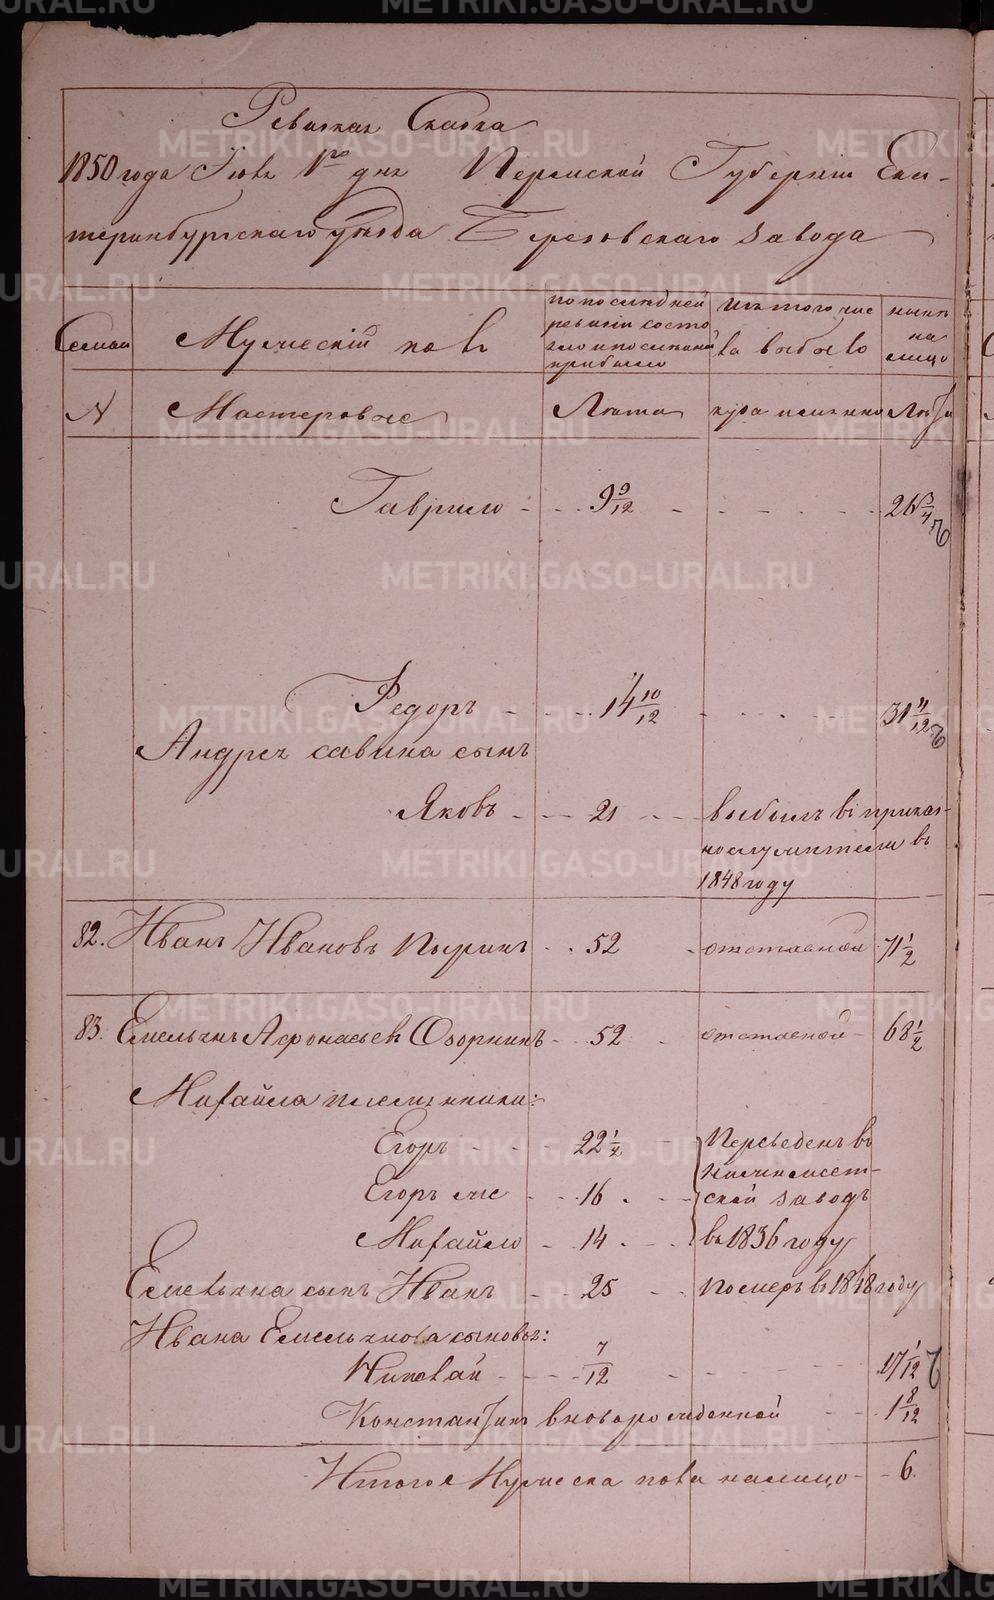 Ревизская Сказка
1850 года Iюля 1го дня Пермской Губернiи Ека-
теринбургскаго уезда Березовскаго завода
Семьи
Мужескiй полъ
по последней
ревизiи состо
яло и после
прибыло
Изъ того чис
ла выбыло
ныне
на
лицо
№
Мастеровые
Лета
когда именно
Лета
Гаврило - - - 9 9/12 - - - -
Федоръ - - - 14 10/12 - - - - 31 4/12
Андрея савина сынъ
Яковъ - - - 21 - - - выбылъ въ приказ-
нослужители въ
1848 году
82. Иванъ Ивановъ Пыринъ - - 52 - отставной 71 1/2
83. Емельянъ Афонасьев Озорнинъ - - 52 - отставной - 68 1/2
Михайла племянники:
Егоръ - - - 22 1/2 - Переведенъ въ
ской заводъ
Егоръ же - - - 16 - -
Михайло - - - 14 - - - въ 1836 году
Емельяна сынъ Иванъ - - - 25 - - померъ въ 1848 году
Ивана Емельянова сыновья:
Николай - - - 7/12 - - - - 17 1/12
Константинъ вновь рожденной - - - 1 8/12
Итого Мужеска пола налицо - - 6.
METRIKI.GASO-URAL.RU